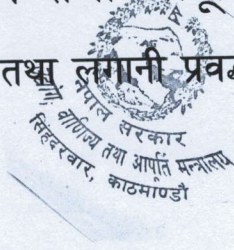 तथा लगानी प्रवर्द्ध
नेपाल सरकार
उद्योग, वाणिज्य तथा आपूर्ति मन्त्रालय
सिंहदरवार, काठमाण्डौ